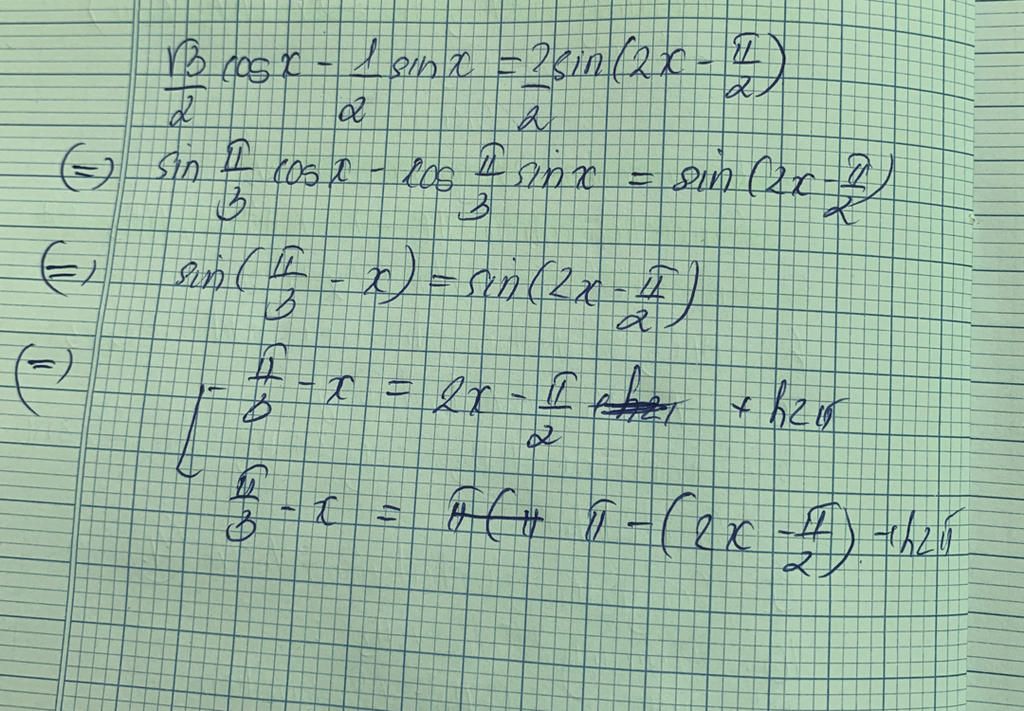 √3/2 cosx - 1/2 sinx = 2/2 sin(2x - π/2)
(=) sin π/3 cosx - cos π/3 sinx = sin(2x - π/2)
(=) sin(π/3 - x) = sin(2x - π/2)
(=) [ π/3 - x = 2x - π/2 + h2π
π/3 - x = π - (2x - π/2) + h2π